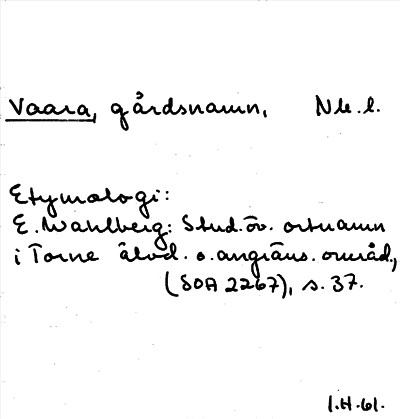 Vaara, gårdsnamn, Nb. l.
Etymologi:
E. Wahlberg: Stud. öv. ortnamn
i Torne älvd. o. angräns. områd.,
(SOA 2267), s. 37.
I.H. 61.